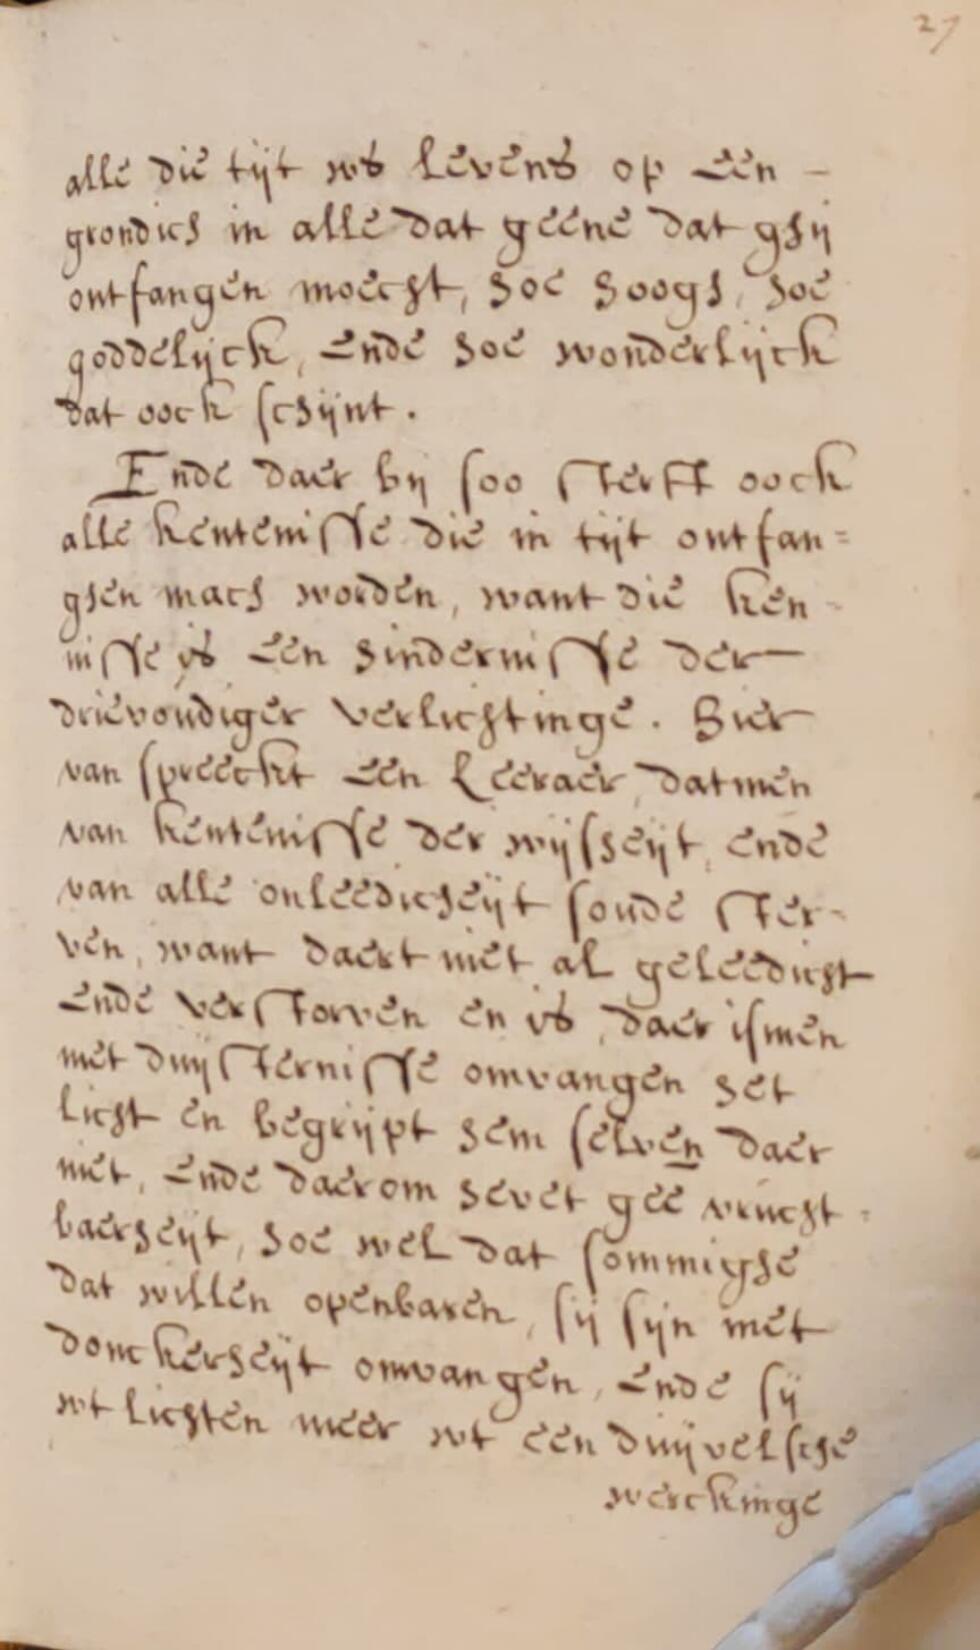 27
alle die tijt ws levens op een -
grondich in alle dat geene dat ghij
ontfangen moecht, hoe hoogh, hoe
goddelijck, ende hoe wonderlijck
dat oock schijnt.
Ende daer bij soo sterft oock
alle kentenisse die in tijt ontfan=
ghen mach worden, want die ken-
nisse is een hindernisse der
drievoudiger verlichtinge. Hier
van spreeckt een Leeraer, datmen
van kentenisse der wijsheijt, ende
van alle onleedicheijt soude ster-
ven, want daert niet al geleedicht
ende verstorven en is, daer ismen
met duijsternisse omvangen het
licht en begrijpt hem selven daer
niet, ende daerom hevet gee vrucht-
baerheijt, hoe wel dat sommighe
dat willen openbaren, sij sijn met
donckerheijt omvangen, ende sij
wt lichten meer wt een duijvelsche
werckinge